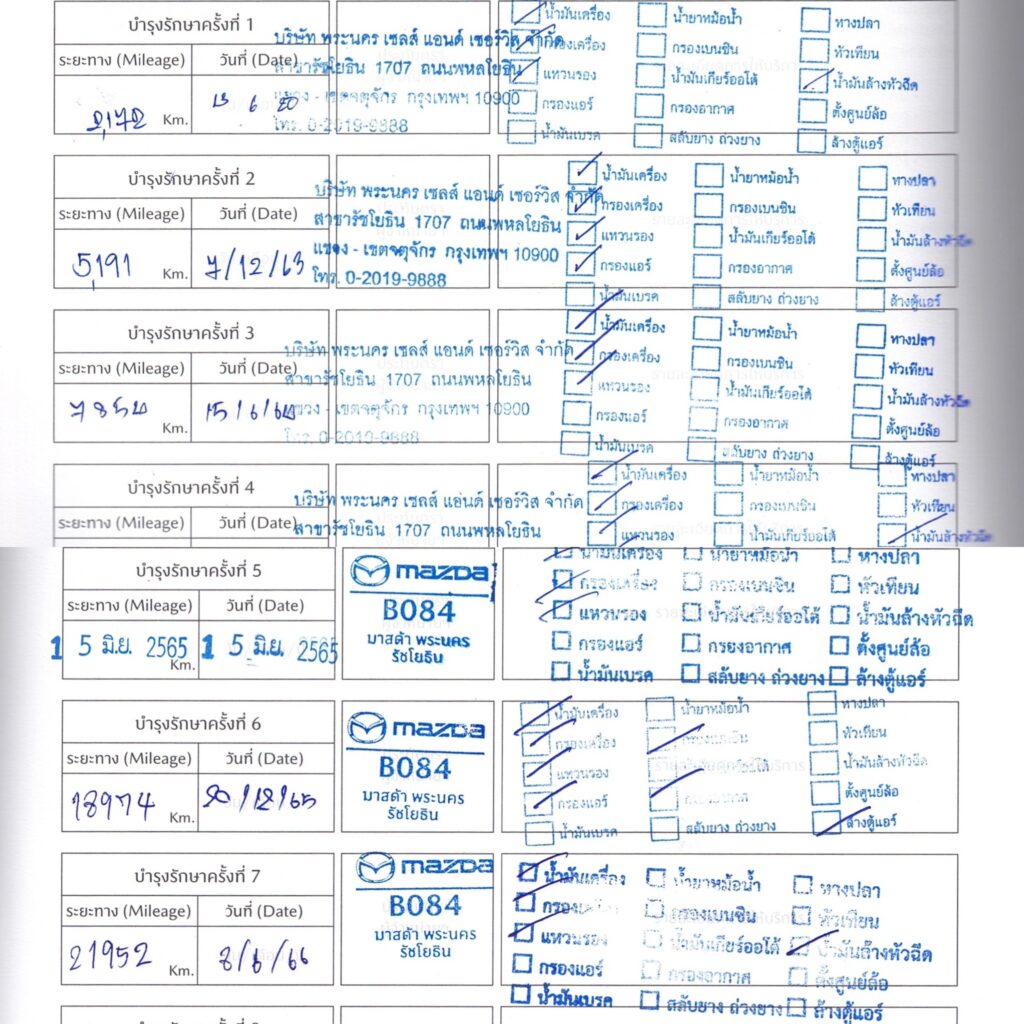 บำรุงรักษาครั้งที่ 1
ระยะทาง (Mileage) วันที่ (Date)
2,172 Km. 13 6 20
บริษัท พระนคร เซลส์ แอนด์ เซอร์วิส จำกัด
สาขารัชโยธิน 1707 ถนนพหลโยธิน
แขวง - เขตจตุจักร กรุงเทพฯ 10900
โทร. 0-2019-9888
น้ำมันเครื่อง น้ำยาหม้อน้ำ ทางปลา
กรองเครื่อง กรองเบนซิน หัวเทียน
แหวนรอง น้ำมันเกียร์ออโต้ น้ำมันล้างหัวฉีด
กรองแอร์ กรองอากาศ ตั้งศูนย์ล้อ
น้ำมันเบรค สลับยาง ถ่วงยาง ล้างตู้แอร์
บำรุงรักษาครั้งที่ 2
ระยะทาง (Mileage) วันที่ (Date)
5,191 Km. 7/12/63
บริษัท พระนคร เซลส์ แอนด์ เซอร์วิส จำกัด
สาขารัชโยธิน 1707 ถนนพหลโยธิน
แขวง - เขตจตุจักร กรุงเทพฯ 10900
โทร. 0-2019-9888
น้ำมันเครื่อง น้ำยาหม้อน้ำ ทางปลา
กรองเครื่อง กรองเบนซิน หัวเทียน
แหวนรอง น้ำมันเกียร์ออโต้ น้ำมันล้างหัวฉีด
กรองแอร์ กรองอากาศ ตั้งศูนย์ล้อ
น้ำมันเบรค สลับยาง ถ่วงยาง ล้างตู้แอร์
บำรุงรักษาครั้งที่ 3
ระยะทาง (Mileage) วันที่ (Date)
Km. 15/6/64
บริษัท พระนคร เซลส์ แอนด์ เซอร์วิส จำกัด
สาขารัชโยธิน 1707 ถนนพหลโยธิน
แขวง - เขตจตุจักร กรุงเทพฯ 10900
โทร. 0-2019-9888
น้ำมันเครื่อง น้ำยาหม้อน้ำ ทางปลา
กรองเครื่อง กรองเบนซิน หัวเทียน
แหวนรอง น้ำมันเกียร์ออโต้ น้ำมันล้างหัวฉีด
กรองแอร์ กรองอากาศ ตั้งศูนย์ล้อ
น้ำมันเบรค สลับยาง ถ่วงยาง ล้างตู้แอร์
บำรุงรักษาครั้งที่ 4
ระยะทาง (Mileage) วันที่ (Date)
บริษัท พระนคร เซลส์ แอนด์ เซอร์วิส จำกัด
สาขารัชโยธิน 1707 ถนนพหลโยธิน
น้ำมันเครื่อง น้ำยาหม้อน้ำ ทางปลา
กรองเครื่อง กรองเบนซิน หัวเทียน
แหวนรอง น้ำมันเกียร์ออโต้ น้ำมันล้างหัวฉีด
บำรุงรักษาครั้งที่ 5
ระยะทาง (Mileage) วันที่ (Date)
1 5 มิ.ย. 2565 Km. 1 5 มิ.ย. 2565
mazda
B084
มาสด้า พระนคร
รัชโยธิน
น้ำมันเครื่อง น้ำยาหม้อน้ำ หางปลา
กรองเครื่อง กรองเบนซิน หัวเทียน
แหวนรอง น้ำมันเกียร์ออโต้ น้ำมันล้างหัวฉีด
กรองแอร์ กรองอากาศ ตั้งศูนย์ล้อ
น้ำมันเบรค สลับยาง ถ่วงยาง ล้างตู้แอร์
บำรุงรักษาครั้งที่ 6
ระยะทาง (Mileage) วันที่ (Date)
18974 Km. 20/12/65
mazda
B084
มาสด้า พระนคร
รัชโยธิน
น้ำมันเครื่อง น้ำยาหม้อน้ำ หางปลา
กรองเครื่อง กรองเบนซิน หัวเทียน
แหวนรอง น้ำมันล้างหัวฉีด
กรองแอร์ กรองอากาศ ตั้งศูนย์ล้อ
น้ำมันเบรค สลับยาง ถ่วงยาง ล้างตู้แอร์
บำรุงรักษาครั้งที่ 7
ระยะทาง (Mileage) วันที่ (Date)
21952 Km. 8/6/66
mazda
B084
มาสด้า พระนคร
รัชโยธิน
น้ำมันเครื่อง น้ำยาหม้อน้ำ หางปลา
กรองเครื่อง กรองเบนซิน หัวเทียน
แหวนรอง น้ำมันเกียร์ออโต้ น้ำมันล้างหัวฉีด
กรองแอร์ กรองอากาศ ตั้งศูนย์ล้อ
น้ำมันเบรค สลับยาง ถ่วงยาง ล้างตู้แอร์